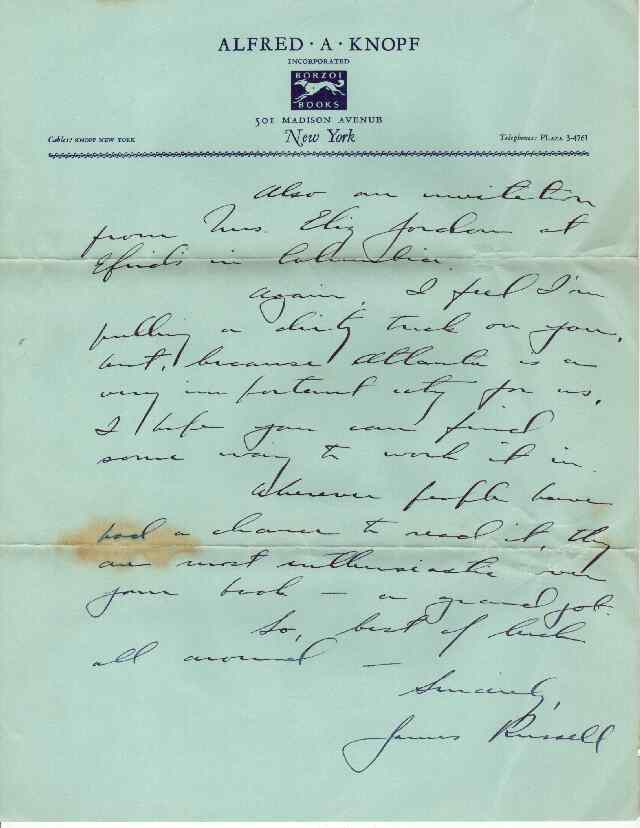 ALFRED · A · KNOPF
INCORPORATED
BORZOI
BOOKS
501 MADISON AVENUE
Cables: KNOPF NEW YORK
New York
Telephone: PLAZA 3-4761
Also an invitation
from Mrs. Eliz Jordan at
in Columbia.
Again, I feel I'm
pulling a dirty trick on you,
but, because Atlanta is a
very important city for us,
I hope you can find
some way to work it in.
Wherever people have
had a chance to read it, they
are most enthusiastic over
your book — a grand job.
So, best of luck
all around —
Sincerely,
James Russell